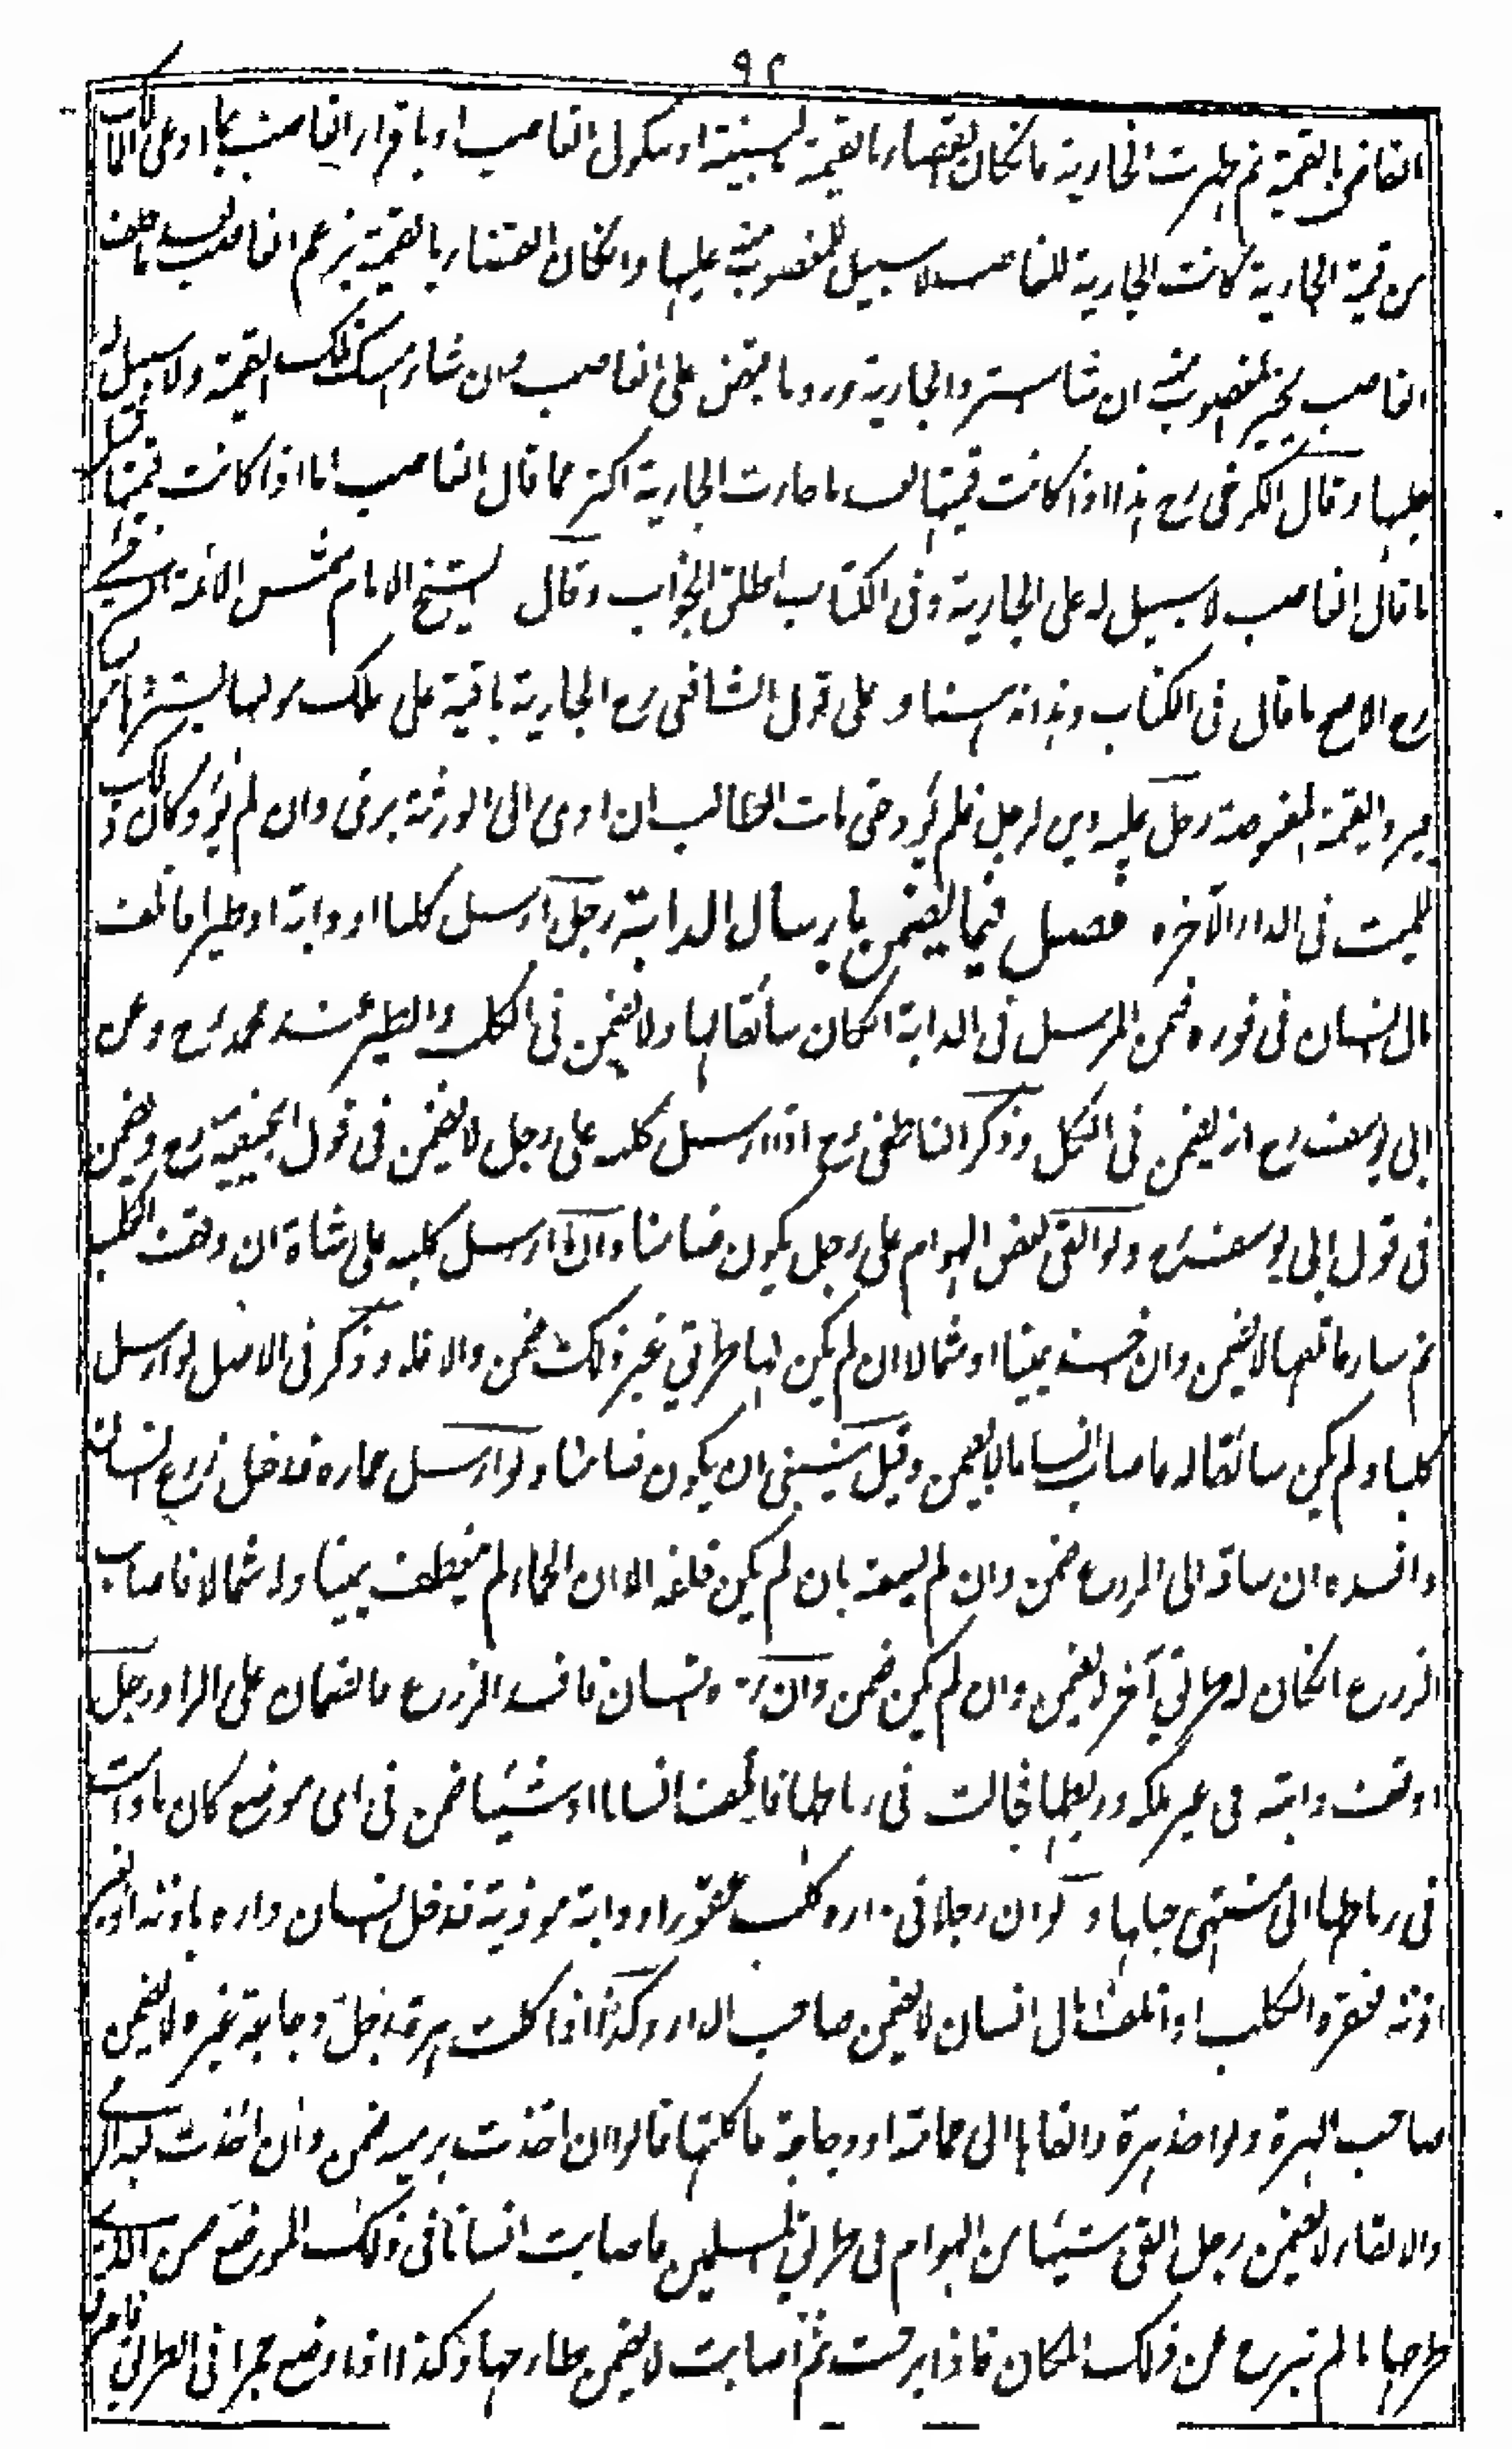 ٩٢
القاضي بالقيمة ثم ظهرت الجارية فانكان القضاء بالقيمة بالبينة او بنكول الغاصب او باقرار الغاصب بما ادعى المالك
من قيمة الجارية كانت الجارية للغاصب لا سبيل للمغصوب منه عليها وانكان القضاء بالقيمة بزعم الغاصب بعد ما حلف
الغاصب يخير المغصوب منه ان شاء استرد الجارية ورد ما قبض على الغاصب وان شاء امسك تلك القيمة ولا سبيل له
عليها وقال الكرخي رح هذا اذا كانت قيمتها بعد ما ظهرت الجارية اكثر مما قال الغاصب اما اذا كانت قيمتها مثل
ما قال الغاصب لا سبيل له على الجارية وفى الكتاب اطلق الجواب وقال الشيخ الامام شمس الائمة السرخسي
رح الاصح ما قال فى الكتاب وهذا عندنا و على قول الشافعى رح الجارية باقية على ملك مولاها يستردها و
يرد القيمة المقبوضة رجل عليه دين لرجل فلم يؤد حتى مات الطالب ان ادى الى الورثة برئ وان لم يؤد كان ذلك
للميت فى الدار الآخرة فصل فيما يضمن بارسال الدابة رجل ارسل كلبا او دابة او طيرا فاتلف
مال انسان فى فوره ضمن المرسل فى الدابة انكان سائقا لها ولا يضمن فى الكلب والطير عند محمد رح وعن
ابى يوسف رح انه يضمن فى الكل وذكر الناطفى رح اذا ارسل كلبه على رجل لا يضمن فى قول ابيحنيفة رح ويضمن
فى قول ابى يوسف رح ولو القى بعض الهوام على رجل يكون ضامنا واذا ارسل كلبه على شاة ان وقف الكلب
ثم سار فاتلفها لا يضمن وان اخذ يمينا او شمالا ان لم يكن لها طريق غير ذلك ضمن والا فلا وذكر فى الاصل لو ارسل
كلبا ولم يكن سائقا له فاصاب انسانا لا يضمن وقيل ينبغى ان يكون ضامنا ولو ارسل حماره فدخل زرع انسان
وافسده ان ساقه الى الزرع ضمن وان لم يسقه بان لم يكن خلفه الا ان الحمار لم ينعطف يمينا ولا شمالا فاصاب
الزرع انكان له طريق آخر لا يضمن وان لم يكن ضمن وان رد انسان فافسد الزرع فالضمان على الراد رجل
اوقف دابته فى غير ملكه وربطها فجالت فى رباطها فاتلفت انسانا او شيئا ضمن فى اى موضع كان ما دامت
فى رباطها الى منتهى حبلها ولو ان رجلا فى داره كلب عقور او دابة موذية فدخل انسان داره باذنه او بغير
اذنه فعقره الكلب او اتلف مال انسان لا يضمن صاحب الدار وكذا اذا اكلت هرة رجل دجاجة غيره لا يضمن
صاحب الهرة ولو اخذ هرة والقاها الى حمامة او دجاجة فاكلتها قالوا ان اخذت برميه ضمن وان اخذت بعد الرمي
والالقاء لا يضمن رجل القى شيئا من الهوام فى طريق المسلمين فاصابت انسانا فى ذلك الموضع ضمن الذى
طرحها ما لم تبرح عن ذلك المكان فاذا برحت ثم اصابت لا يضمن طارحها وكذا اذا وضع جمرا فى الطريق